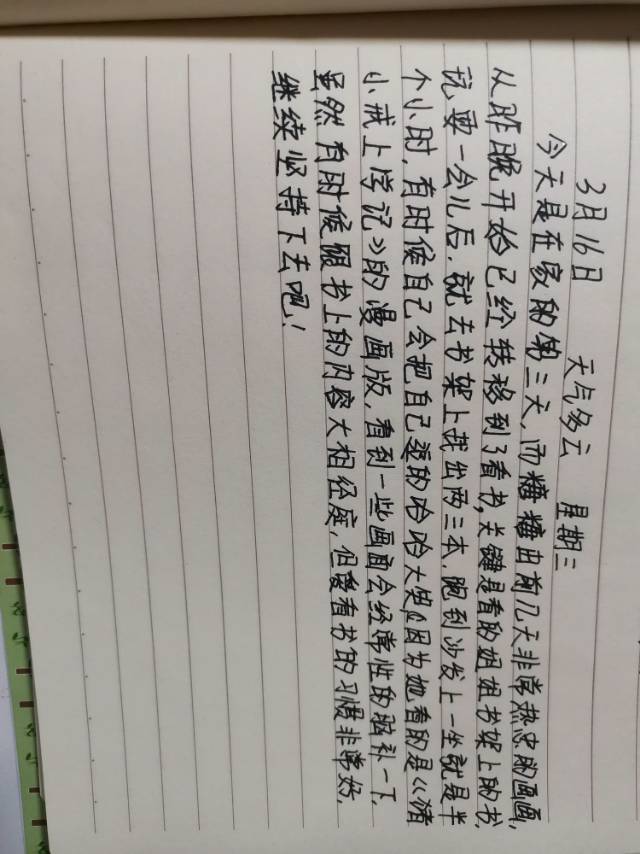 3月16日 天气多云 星期三
今天是在家的第三天,而糖糖由前几天非常热忠的画画,
从昨晚开始已经转移到了看书,关键是看的姐姐书架上的书,
玩耍一会儿后,就去书架上找出两三本,跑到沙发上一坐就是半
个小时,有时候自己会把自己逗的哈哈大笑(因为她看的是《猪
小戒上学记》的漫画版,看到一些画面会经常性的脑补一下,
虽然有时候跟书上的内容大相径庭,但爱看书的习惯非常好,
继续坚持下去吧!